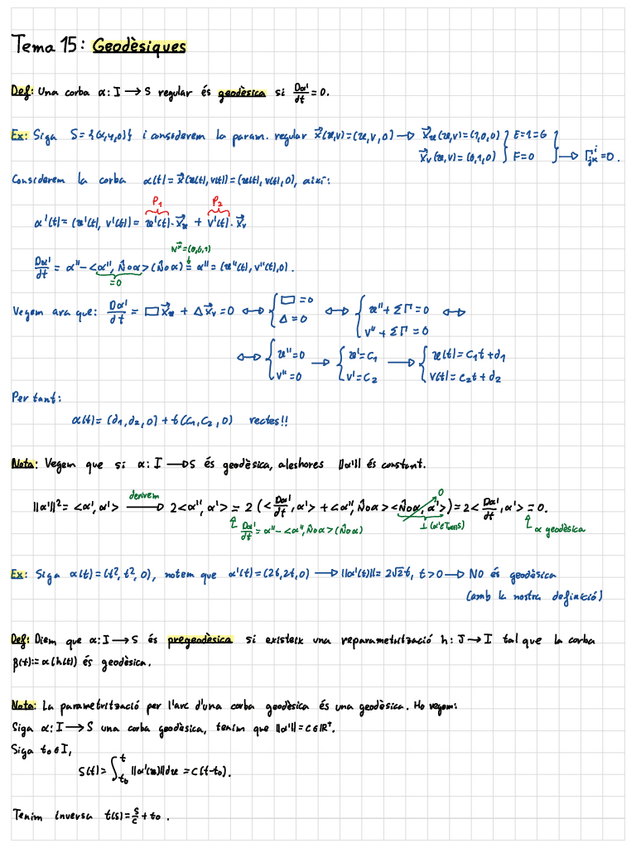 Tema 15: Geodèsiques
Def: Una corba α: I → S regular és geodèsica si Dα'/dt = 0.
Ex: Siga S = {(x,y,0)} i considerem la param. regular x⃗(u,v) = (u,v,0) → x⃗u(u,v) = (1,0,0) } E=1=G
x⃗v(u,v) = (0,1,0) } F=0 } → Γⁱⱼₖ = 0.
Considerem la corba α(t) = x⃗(u(t), v(t)) = (u(t), v(t), 0), així:
P1 P2
α'(t) = (u'(t), v'(t)) = u'(t)·x⃗u + v'(t)·x⃗v
N^x⃗ = (0,0,1)
Dα'/dt = α'' - <α'', N∘α>(N∘α) = α'' = (u''(t), v''(t), 0).
=0
Vegem ara que: Dα'/dt = □x⃗u + Δx⃗v = 0 ↔ { □ = 0 ↔ { u'' + ΣΓ = 0 ↔
Δ = 0 v'' + ΣΓ = 0
↔ { u'' = 0 → { u' = C1 → { u(t) = C1t + d1
v'' = 0 v' = C2 v(t) = C2t + d2
Per tant:
α(t) = (d1, d2, 0) + t(C1, C2, 0) rectes!!
Nota: Vegem que si α: I → S és geodèsica, aleshores ||α'|| és constant.
||α'||² = <α', α'> derivem → 2<α'', α'> = 2(<Dα'/dt, α'> + <α'', N∘α><N∘α, α'>) = 2<Dα'/dt, α'> = 0.
0
Dα'/dt = α'' - <α'', N∘α>(N∘α) α geodèsica
Ex: Siga α(t) = (t², t², 0), notem que α'(t) = (2t, 2t, 0) → ||α'(t)|| = 2√2t, t>0 → NO és geodèsica
(amb la nostra definició)
Def: Diem que α: I → S és pregeodèsica si existeix una reparametrització h: J → I tal que la corba
β(t) := α(h(t)) és geodèsica.
Nota: La parametrització per l'arc d'una corba geodèsica és una geodèsica. Ho vegem:
Siga α: I → S una corba geodèsica, tenim que ||α'|| = C ∈ ℝ⁺.
Siga t0 ∈ I,
S(t) = ∫_{t0}^{t} ||α'(u)||du = C(t-t0).
Tenim inversa t(s) = s/c + t0.